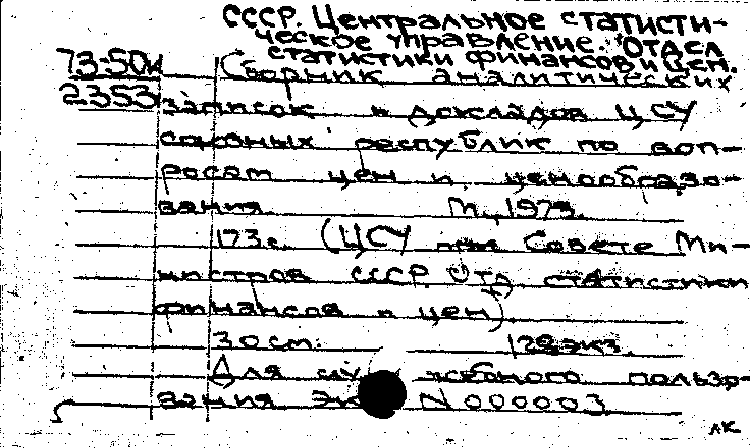 СССР. Центральное статисти-
ческое управление. Отдел
статистики финансов и цен.
73-50к
Сборник аналитических
2353
записок и докладов ЦСУ
союзных республик по воп-
росам цен и ценообразо-
вания. М., 1973.
173 с. (ЦСУ при Совете Ми-
нистров СССР. Отд. статистики
финансов и цен).
30 см. экз.
Для служебного пользо-
вания Эк N 000003
АК